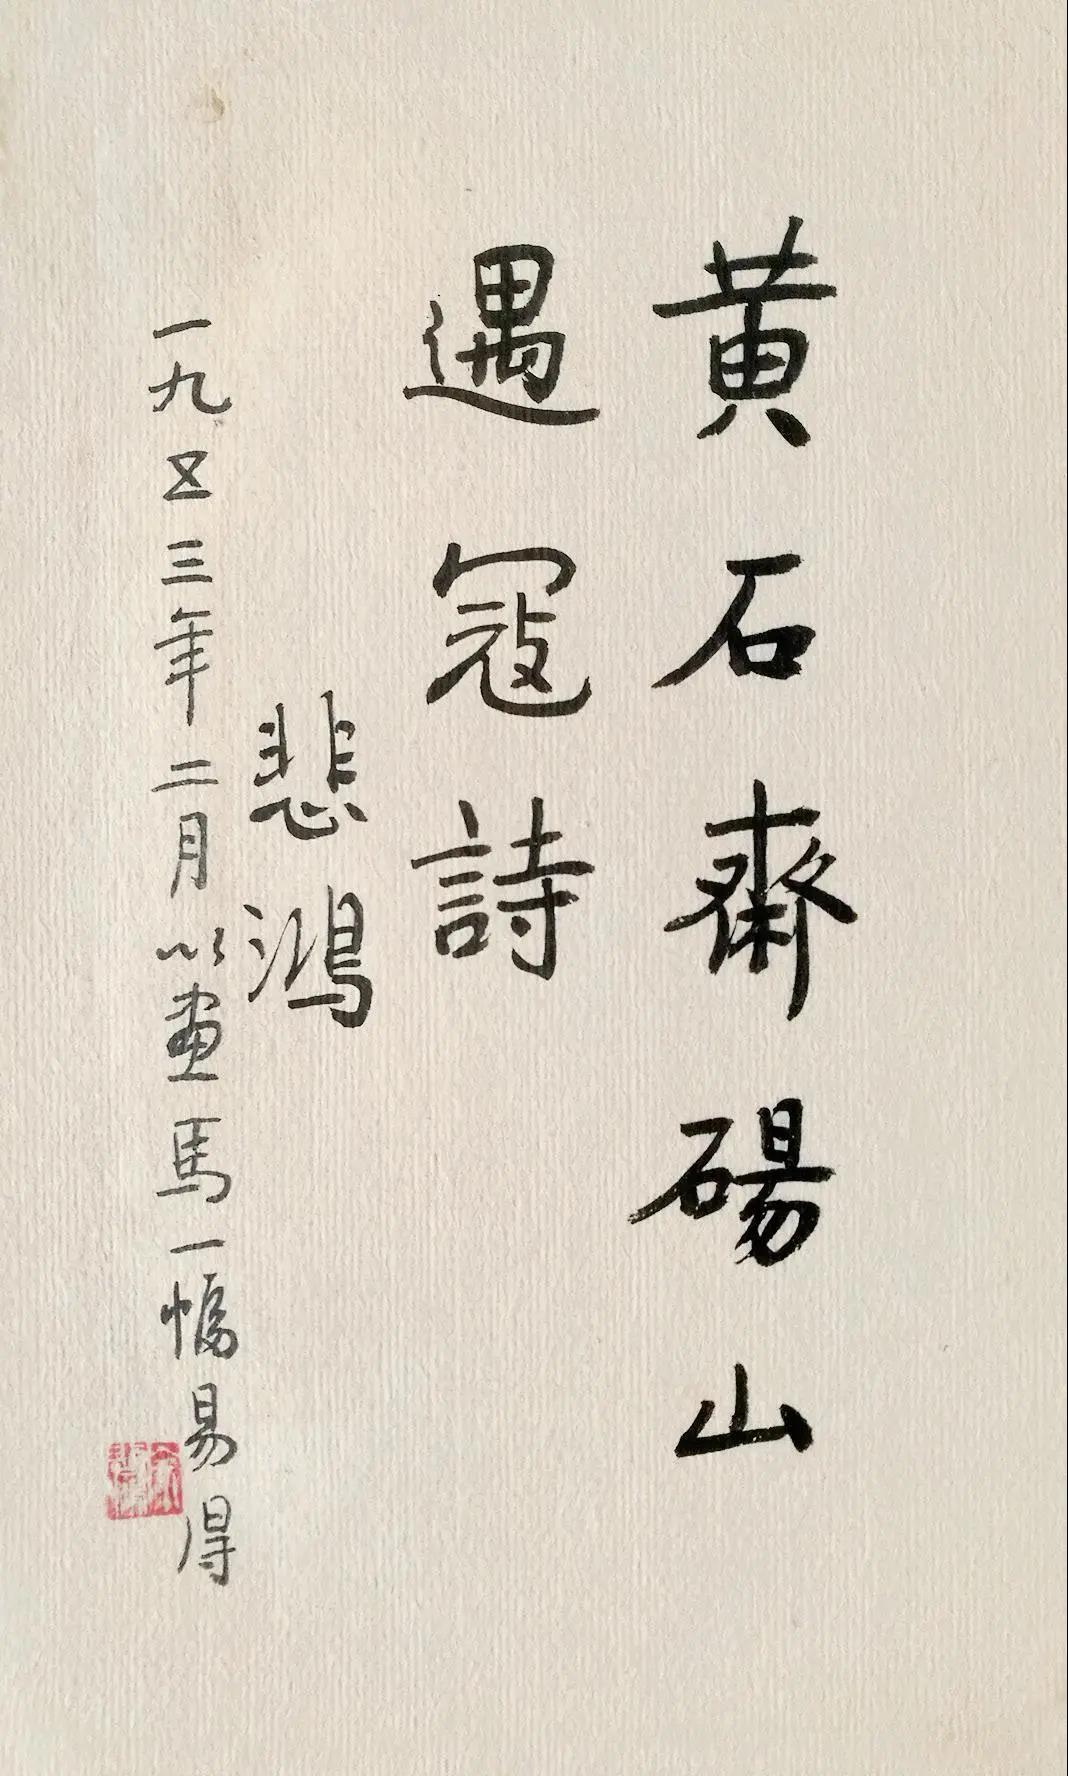 黄石齋碭山
遇寇詩
悲鴻
一九五三年二月以畫馬一幅易得